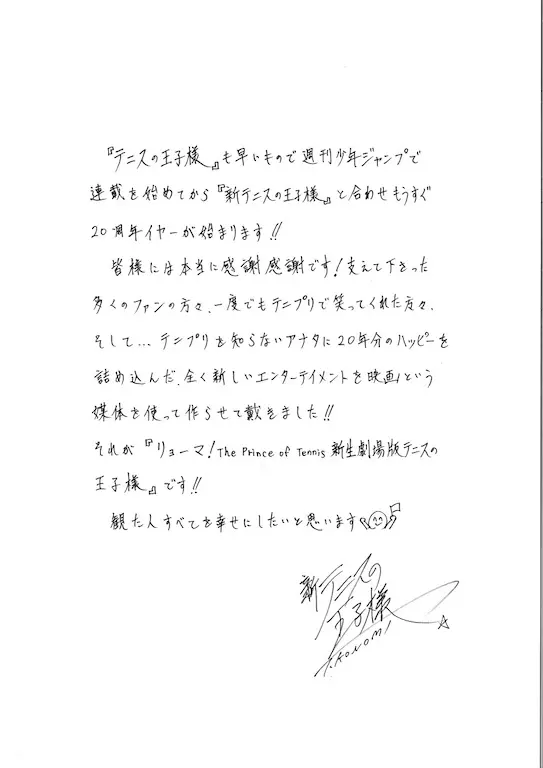 『テニスの王子様』も早いもので週刊少年ジャンプで
連載を始めてから『新テニスの王子様』と合わせもうすぐ
20周年イヤーが始まります!!
皆様には本当に感謝感謝です!支えて下さった
多くのファンの方々、一度でもテニプリで笑ってくれた方々、
そして...テニプリを知らないアナタに20年分のハッピーを
詰め込んだ、全く新しいエンターテイメントを映画という
媒体を使って作らせて戴きました!!
それが『リョーマ!The Prince of Tennis 新生劇場版テニスの
王子様』です!!
観た人すべてを幸せにしたいと思います
新テニスの
王子様
T.KONOMI